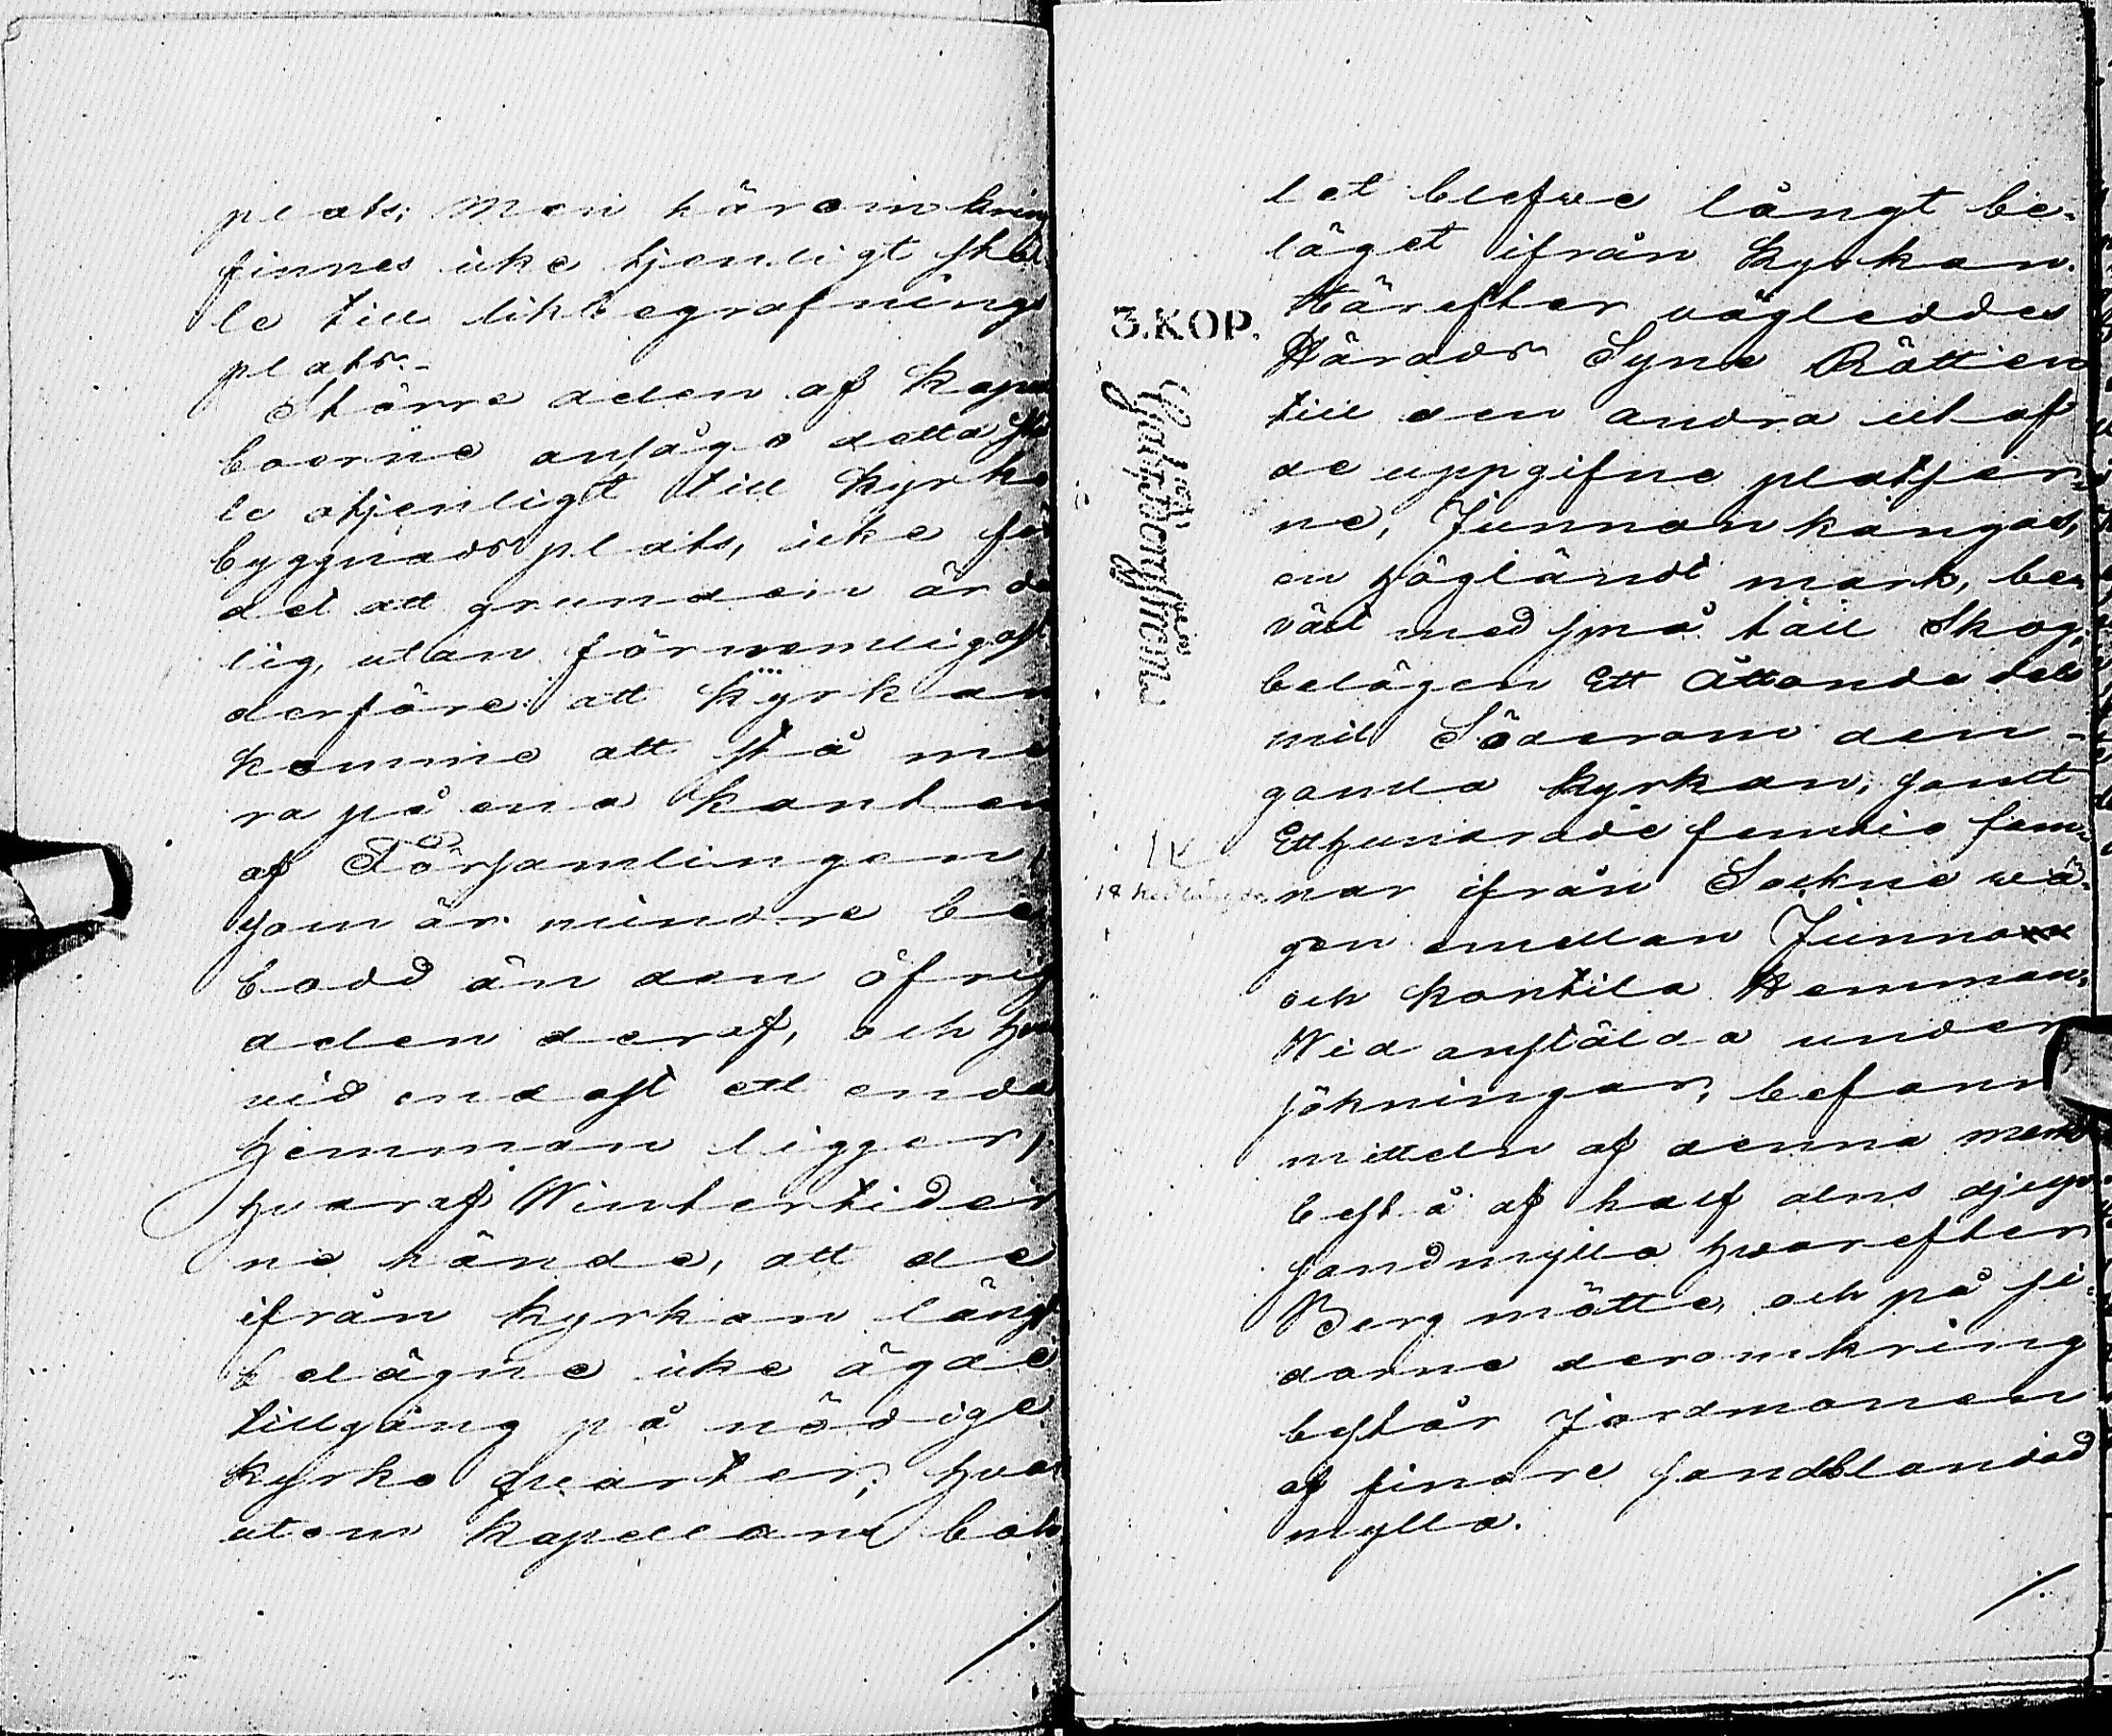 plats; men häromkring
finnes icke tjenligt stäl
le till likbegrafnings
plats.-
Större delen af Kapell
boerne ansågo detta stäl
le otjenligt till Kyrko
byggnads plats, icke för
det att grunden är då
lig, utan förnemligast
derföre att Kyrkan
komme att stå me
ra på ena kanten
af Församlingen,
som är mindre be
bodd än den öfriga
delen deraf, och hvar
vid endast ett enda
hemman ligger,
hvaraf Wintertider
ne hände, att de
ifrån kyrkan längst
belägne icke ägde
tillgång på nödige
kyrko qvarter; hvar
utom kapellans bol
let blefve långt be-
läget ifrån kyrkan.
Härefter vägleddes
Härads Syne Rätten
till den andra utaf
de uppgifne platser-
ne, Junnonkangas,
en högländt mark, be-
växt med små täll Skog,
belägen Ett Åttonde dels
mil Söderom den
gamla kyrkan, samt
Etthundrade femtio fam-
nar ifrån Sockne vä-
gen emellan Junno
och Kontila Hemman.
Wid anstälda under
sökningar, befanns
mitteln af denna mark
bestå af half alns djup
sandmylla hvarefter
Berg mötte, och på si-
dorne deromkring
består Jordmonen
af finare sandblandad
mylla.
3.KOP.